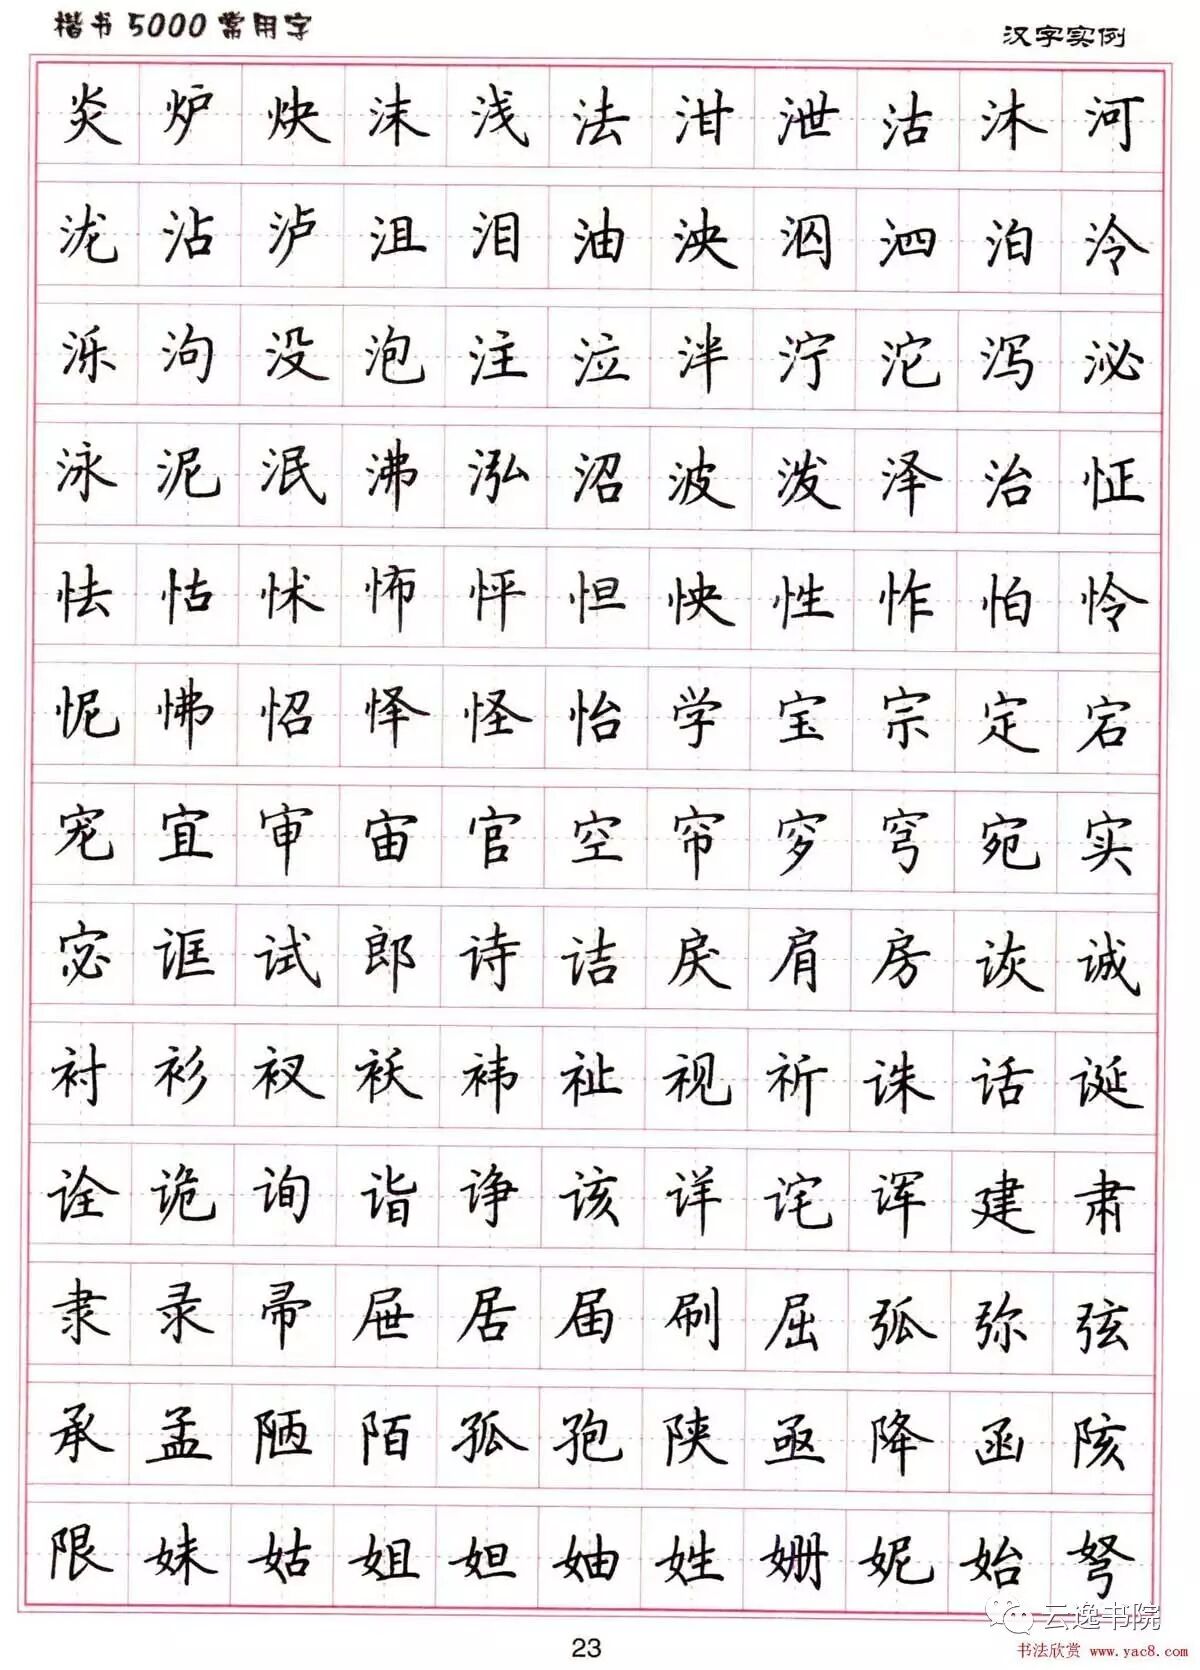 楷书5000常用字
汉字实例
炎炉炔沫浅法泔泄沽沐河
泷沾泸沮泪油泱泅泗泊泠
泺泃没泡注泣泮泞沱泻泌
泳泥泯沸泓沼波泼泽治怔
怯怙怵怖怦怛怏性怍怕怜
怩怫怊怿怪怡学宝宗定宕
宠宜审宙官空帘穸穹宛实
宓诓试郎诗诘戾肩房诙诚
衬衫衩袄袆祉视祈诛话诞
诠诡询诣诤该详诧诨建肃
隶录帚屉居届刷屈弧弥弦
承孟陋陌孤孢陕亟降函陔
限妹姑姐妲妯姓姗妮始弩
云逸书院
23
书法欣赏 www.yac8.com